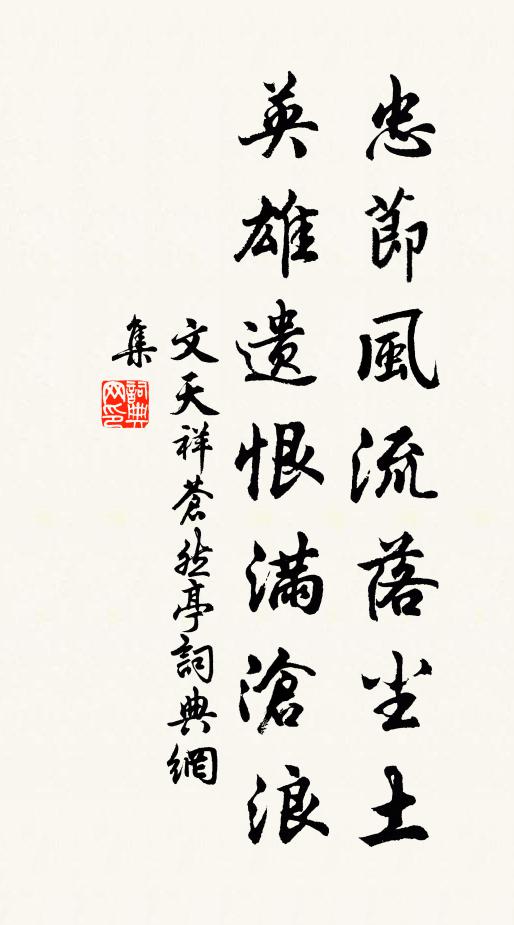 忠節風流落尘土
英雄遗恨滿滄浪
文天祥蒼然亭詞典網
集
詞典
网印